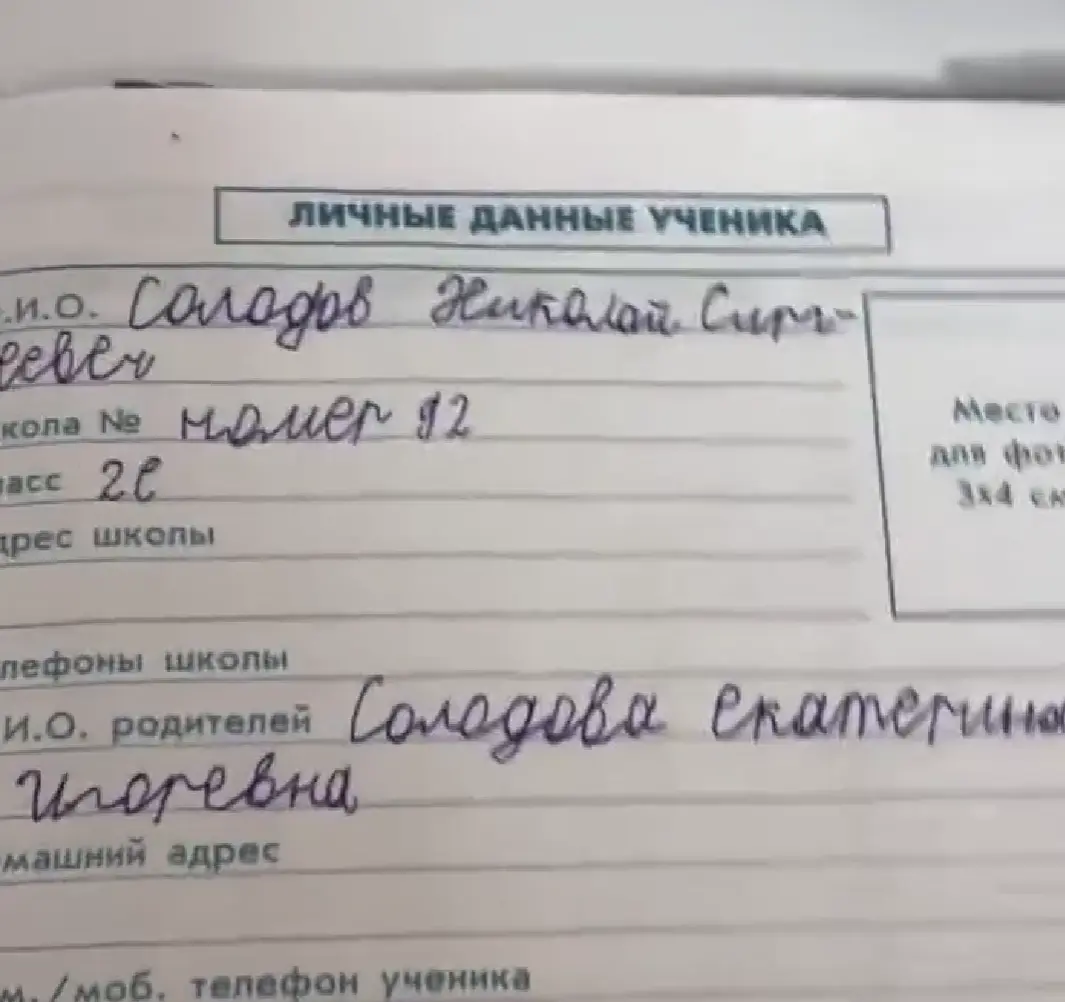 ЛИЧНЫЕ ДАННЫЕ УЧЕНИКА
.И.О. Солодов Николай Сирг-
еевеч
кола № номер 92
ласс 2е
Место
для фот
3х4 см
дрес школы
лефоны школы
И.О. родителей Солодова екатерина
Игоревна
машний адрес
м./моб. телефон ученика